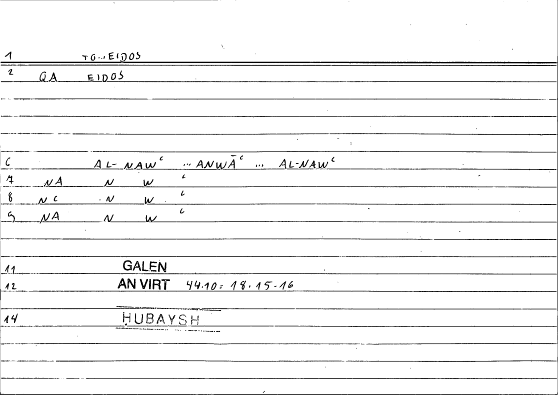 1 TO...EIDOS
2 GA EIDOS
6 AL- NAWʿ ... ANWĀʿ ... AL-NAWʿ
7 NA N W ʿ
8 NC N W ʿ
9 NA N W ʿ
11 GALEN
12 AN VIRT 44.10: 18.15-16
14 HUBAYSH